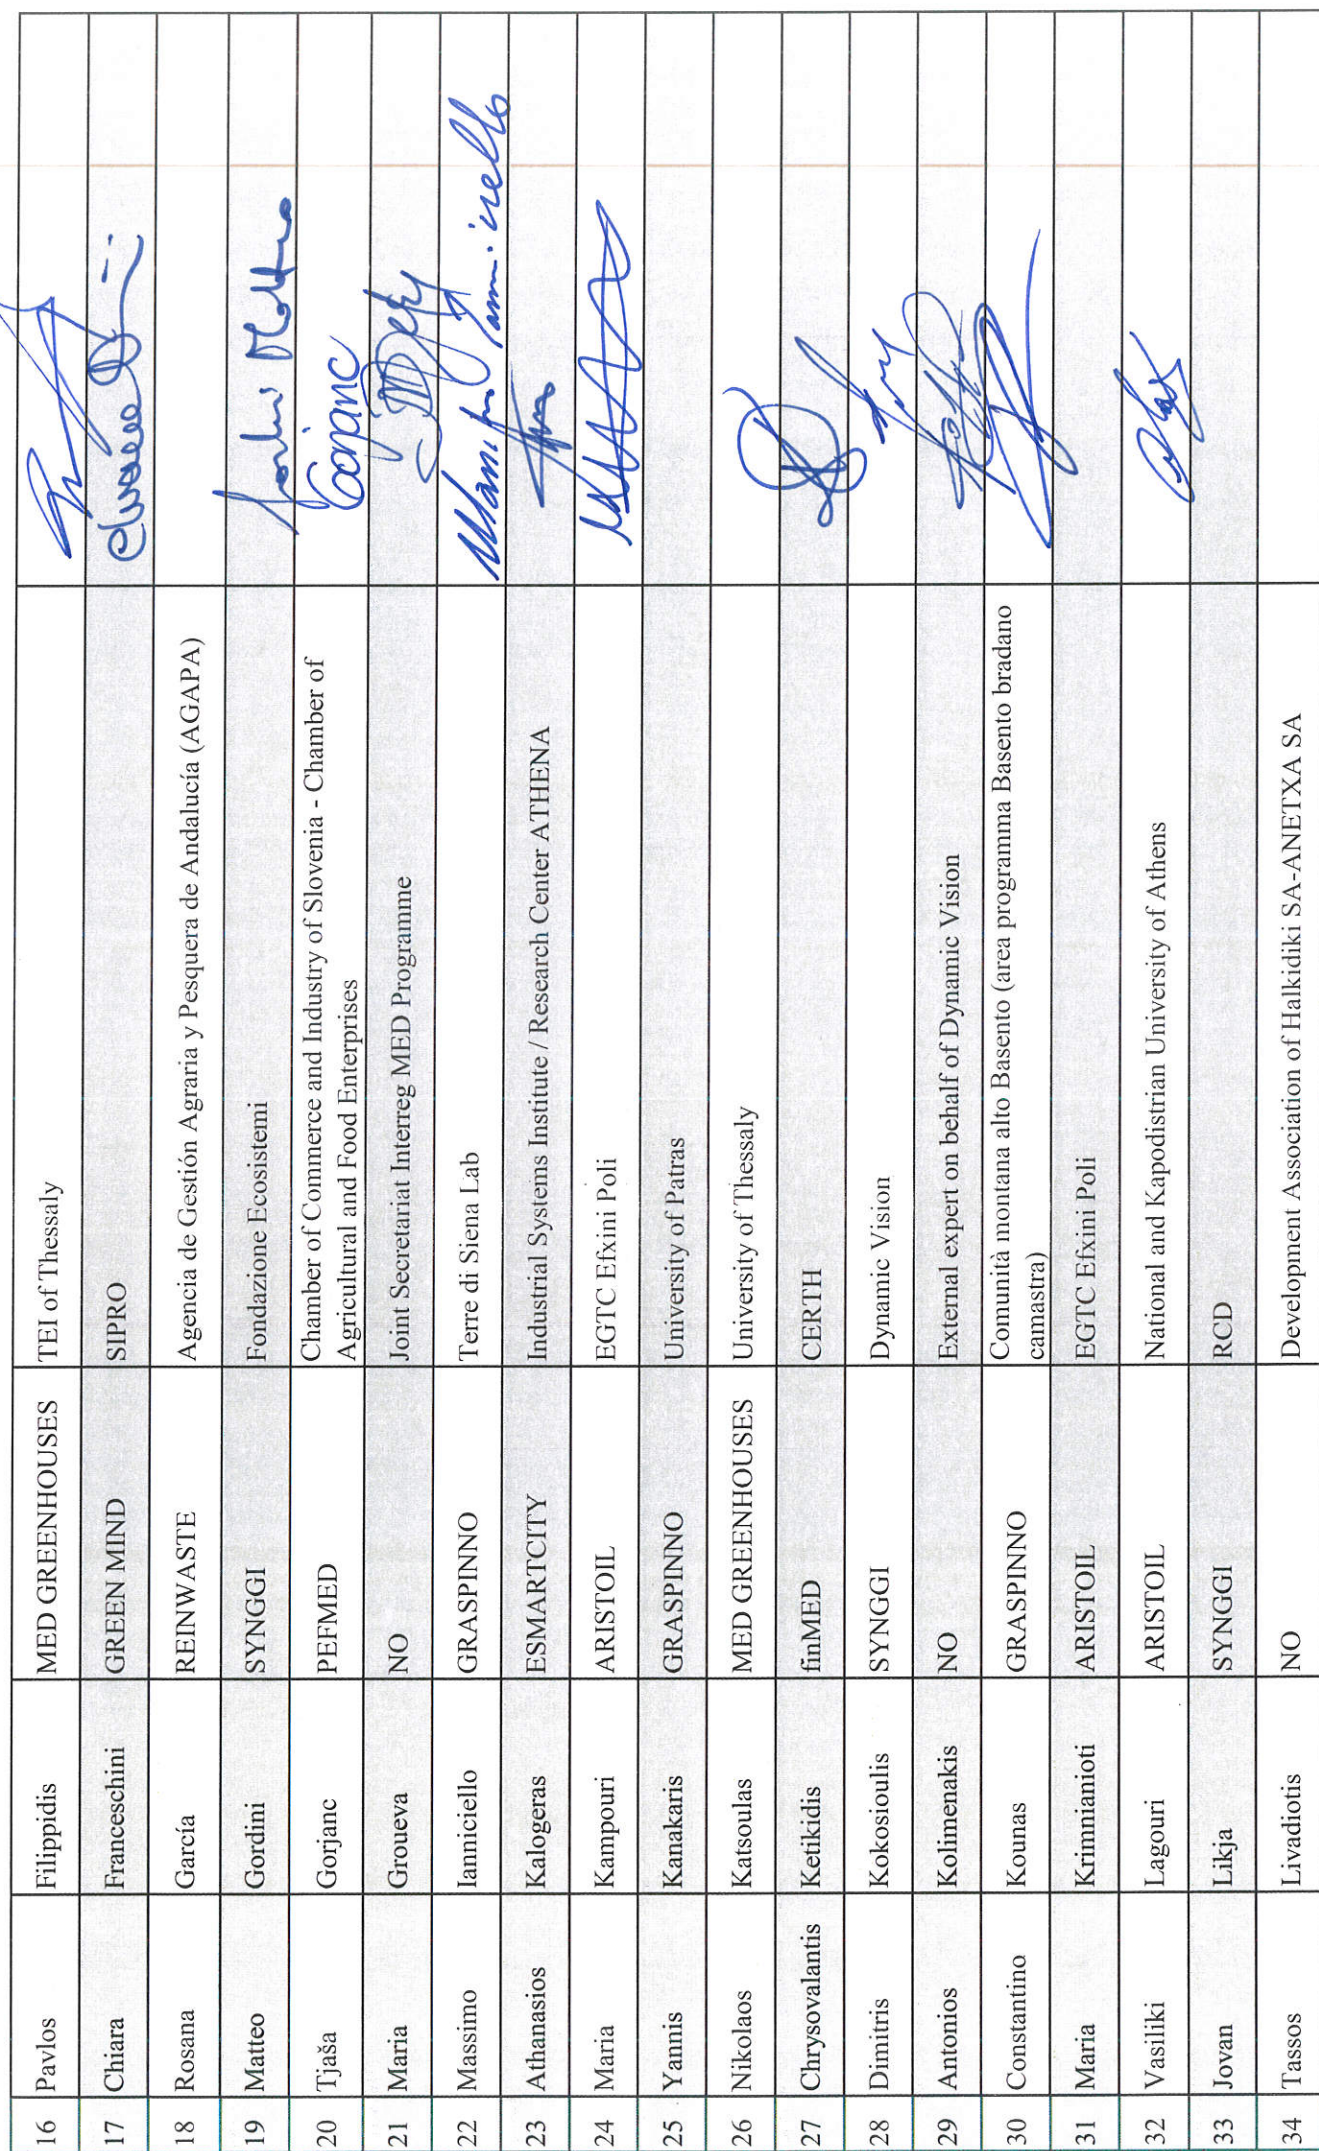 16 Pavlos Filippidis MED GREENHOUSES TEI of Thessaly
17 Chiara Franceschini GREEN MIND SIPRO
18 Rosana García REINWASTE Agencia de Gestión Agraria y Pesquera de Andalucía (AGAPA)
19 Matteo Gordini SYNGGI Fondazione Ecosistemi
20 Tjaša Gorjanc PEFMED Chamber of Commerce and Industry of Slovenia - Chamber of
Agricultural and Food Enterprises Gorjanc
21 Maria Groueva NO Joint Secretariat Interreg MED Programme
22 Massimo Ianniciello GRASPINNO Terre di Siena Lab
23 Athanasios Kalogeras ESMARTCITY Industrial Systems Institute / Research Center ATHENA
24 Maria Kampouri ARISTOIL EGTC Efxini Poli
25 Yannis Kanakaris GRASPINNO University of Patras
26 Nikolaos Katsoulas MED GREENHOUSES University of Thessaly
27 Chrysovalantis Ketikidis finMED CERTH
28 Dimitris Kokosioulis SYNGGI Dynamic Vision
29 Antonios Kolimenakis NO External expert on behalf of Dynamic Vision
30 Constantino Kounas GRASPINNO Comunità montana alto Basento (area programma Basento bradano
camastra)
31 Maria Krimnianioti ARISTOIL EGTC Efxini Poli
32 Vasiliki Lagouri ARISTOIL National and Kapodistrian University of Athens
33 Jovan Likja SYNGGI RCD
34 Tassos Livadiotis NO Development Association of Halkidiki SA-ANETXA SA